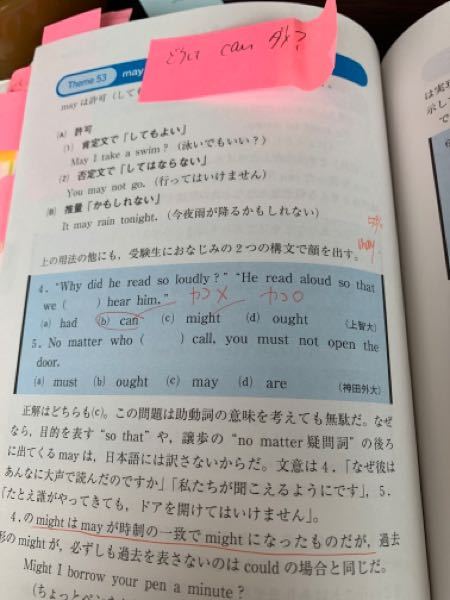 どうして can ダメ?
Theme 53 may
may は許可（して
(A) 許可
(1) 肯定文で「してもよい」
May I take a swim ? （泳いでもいい？）
(2) 否定文で「してはならない」
You may not go. （行ってはいけません）
(B) 推量「かもしれない」
It may rain tonight. （今夜雨が降るかもしれない）
may
上の用法の他にも，受験生におなじみの２つの構文で顔を出す。
4. “Why did he read so loudly ? ” “He read aloud so that
we (　　) hear him.” カコ× カコ○
(a) had (b) can (c) might (d) ought （上智大）
5. No matter who (　　) call, you must not open the
door.
(a) must (b) ought (c) may (d) are （神田外大）
正解はどちらも(c)。この問題は助動詞の意味を考えても無駄だ。なぜ
なら，目的を表す“so that”や，譲歩の“no matter 疑問詞”の後ろ
に出てくるmayは，日本語には訳さないからだ。文意は４．「なぜ彼は
あんなに大声で読んだのですか」「私たちが聞こえるようにです」，５．
「たとえ誰がやってきても，ドアを開けてはいけません」。
４．のmightはmayが時制の一致でmightになったものだが，過去
形のmightが，必ずしも過去を表さないのはcouldの場合と同じだ。
Might I borrow your pen a minute ?
は実現
示し
で